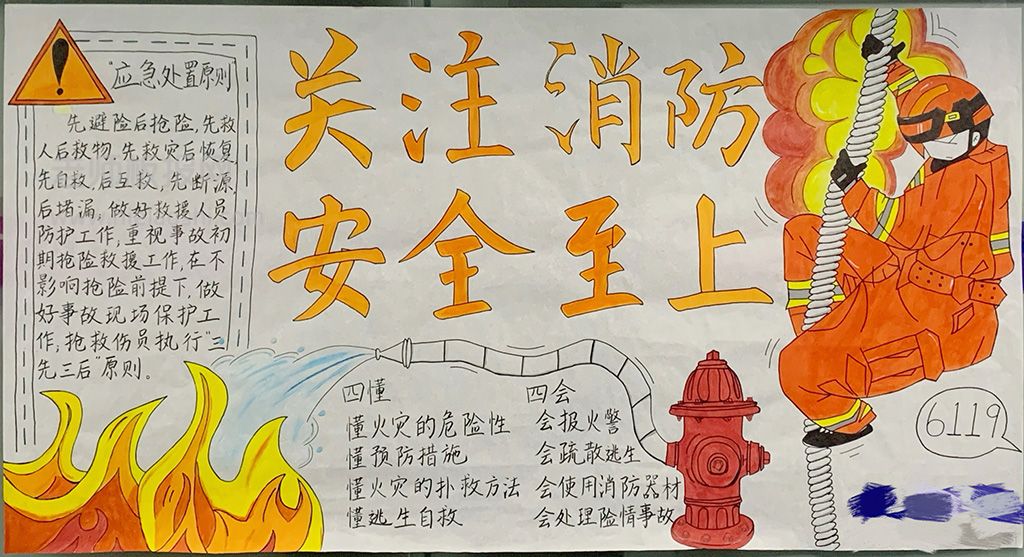 关注消防
安全至上
"应急处置原则
先避险后抢险,先救
人后救物,先救灾后恢复
先自救,后互救,先断源
后堵漏;做好救援人员
防护工作,重视事故初
期抢险救援工作,在不
影响抢险前提下,做
好事故现场保护工
作;抢救伤员执行"三
先三后"原则。
四懂
懂火灾的危险性
懂预防措施
懂火灾的扑救方法
懂逃生自救
四会
会报火警
会疏散逃生
会使用消防器材
会处理险情事故
6119